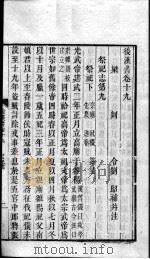 後漢書卷十九
梁 剡 令劉昭補并注
祭祀志第九
祭祀下 宗廟 社稷 靈星 先農 迎春
光武帝建武二年正月立高廟于雒陽
四時祫祀高帝爲太祖文帝爲太宗武帝爲世
宗如舊餘帝四時春以正月夏以四月秋以七月冬
以十月及臘一歲五祀三年正月立親廟雒陽祀父南
頓君以上至舂陵節侯時寇賊未夷方務征伐祀儀未
設至十九年盜賊討除戎事差息於是五官中郎將